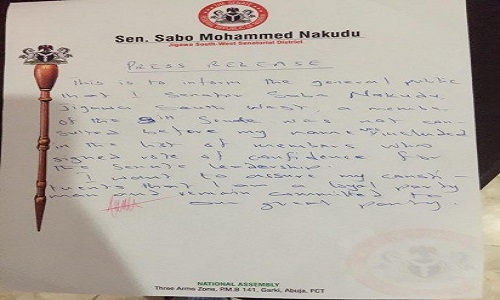 Sen. Sabo Mohammed Nakudu
Jigawa South-West Senatorial District
PRESS RELEASE
This is to inform the general public
that I Senator Sabo Nakudu
Jigawa South West. a member
of the 8th Senate was not con-
sulted before my name was included
in the list of members who
signed vote of confidence for
the Senate leadership.
I want to assure my consti-
tuents that I am a loyal party
man and remain committed to
our great party.
NATIONAL ASSEMBLY
Three Arms Zone, P.M.B 141, Garki, Abuja, FCT